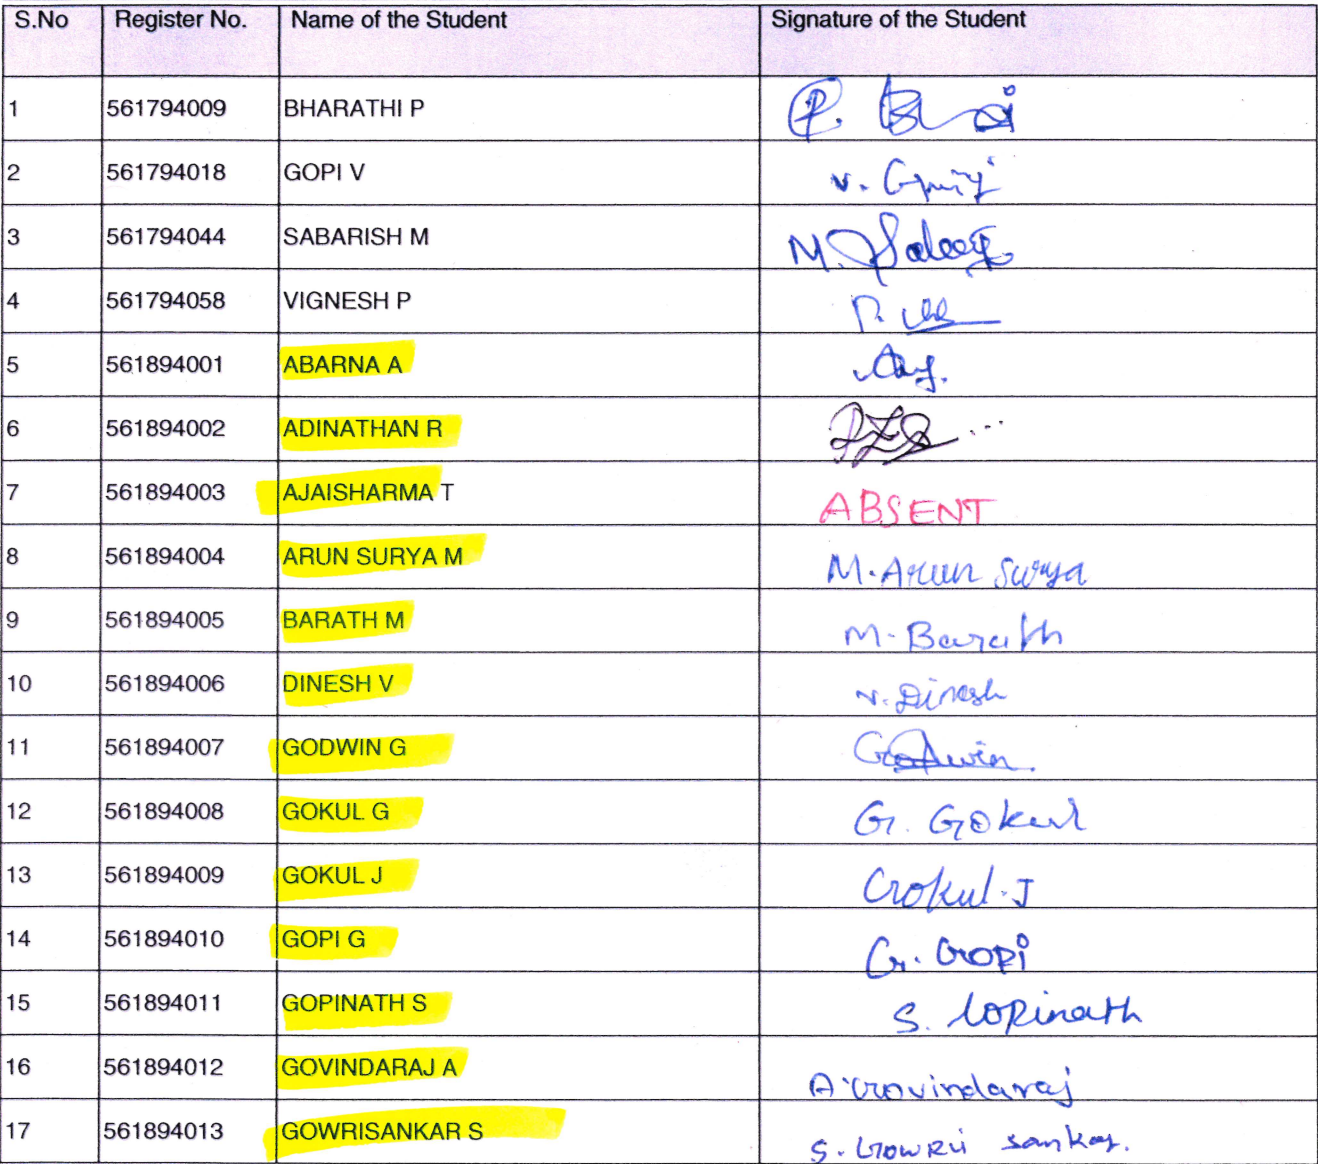 S.No Register No. Name of the Student Signature of the Student
1 561794009 BHARATHI P P.
2 561794018 GOPI V V. Gopi
3 561794044 SABARISH M M.
4 561794058 VIGNESH P P.
5 561894001 ABARNA A
6 561894002 ADINATHAN R
7 561894003 AJAISHARMA T ABSENT
8 561894004 ARUN SURYA M M. Arun Surya
9 561894005 BARATH M M. Barath
10 561894006 DINESH V V. Dinesh
11 561894007 GODWIN G Godwin.
12 561894008 GOKUL G G. Gokul
13 561894009 GOKUL J Gokul. J
14 561894010 GOPI G G. Gopi
15 561894011 GOPINATH S S. Gopinath
16 561894012 GOVINDARAJ A A. Govindaraj
17 561894013 GOWRISANKAR S S. Gowri sankar.